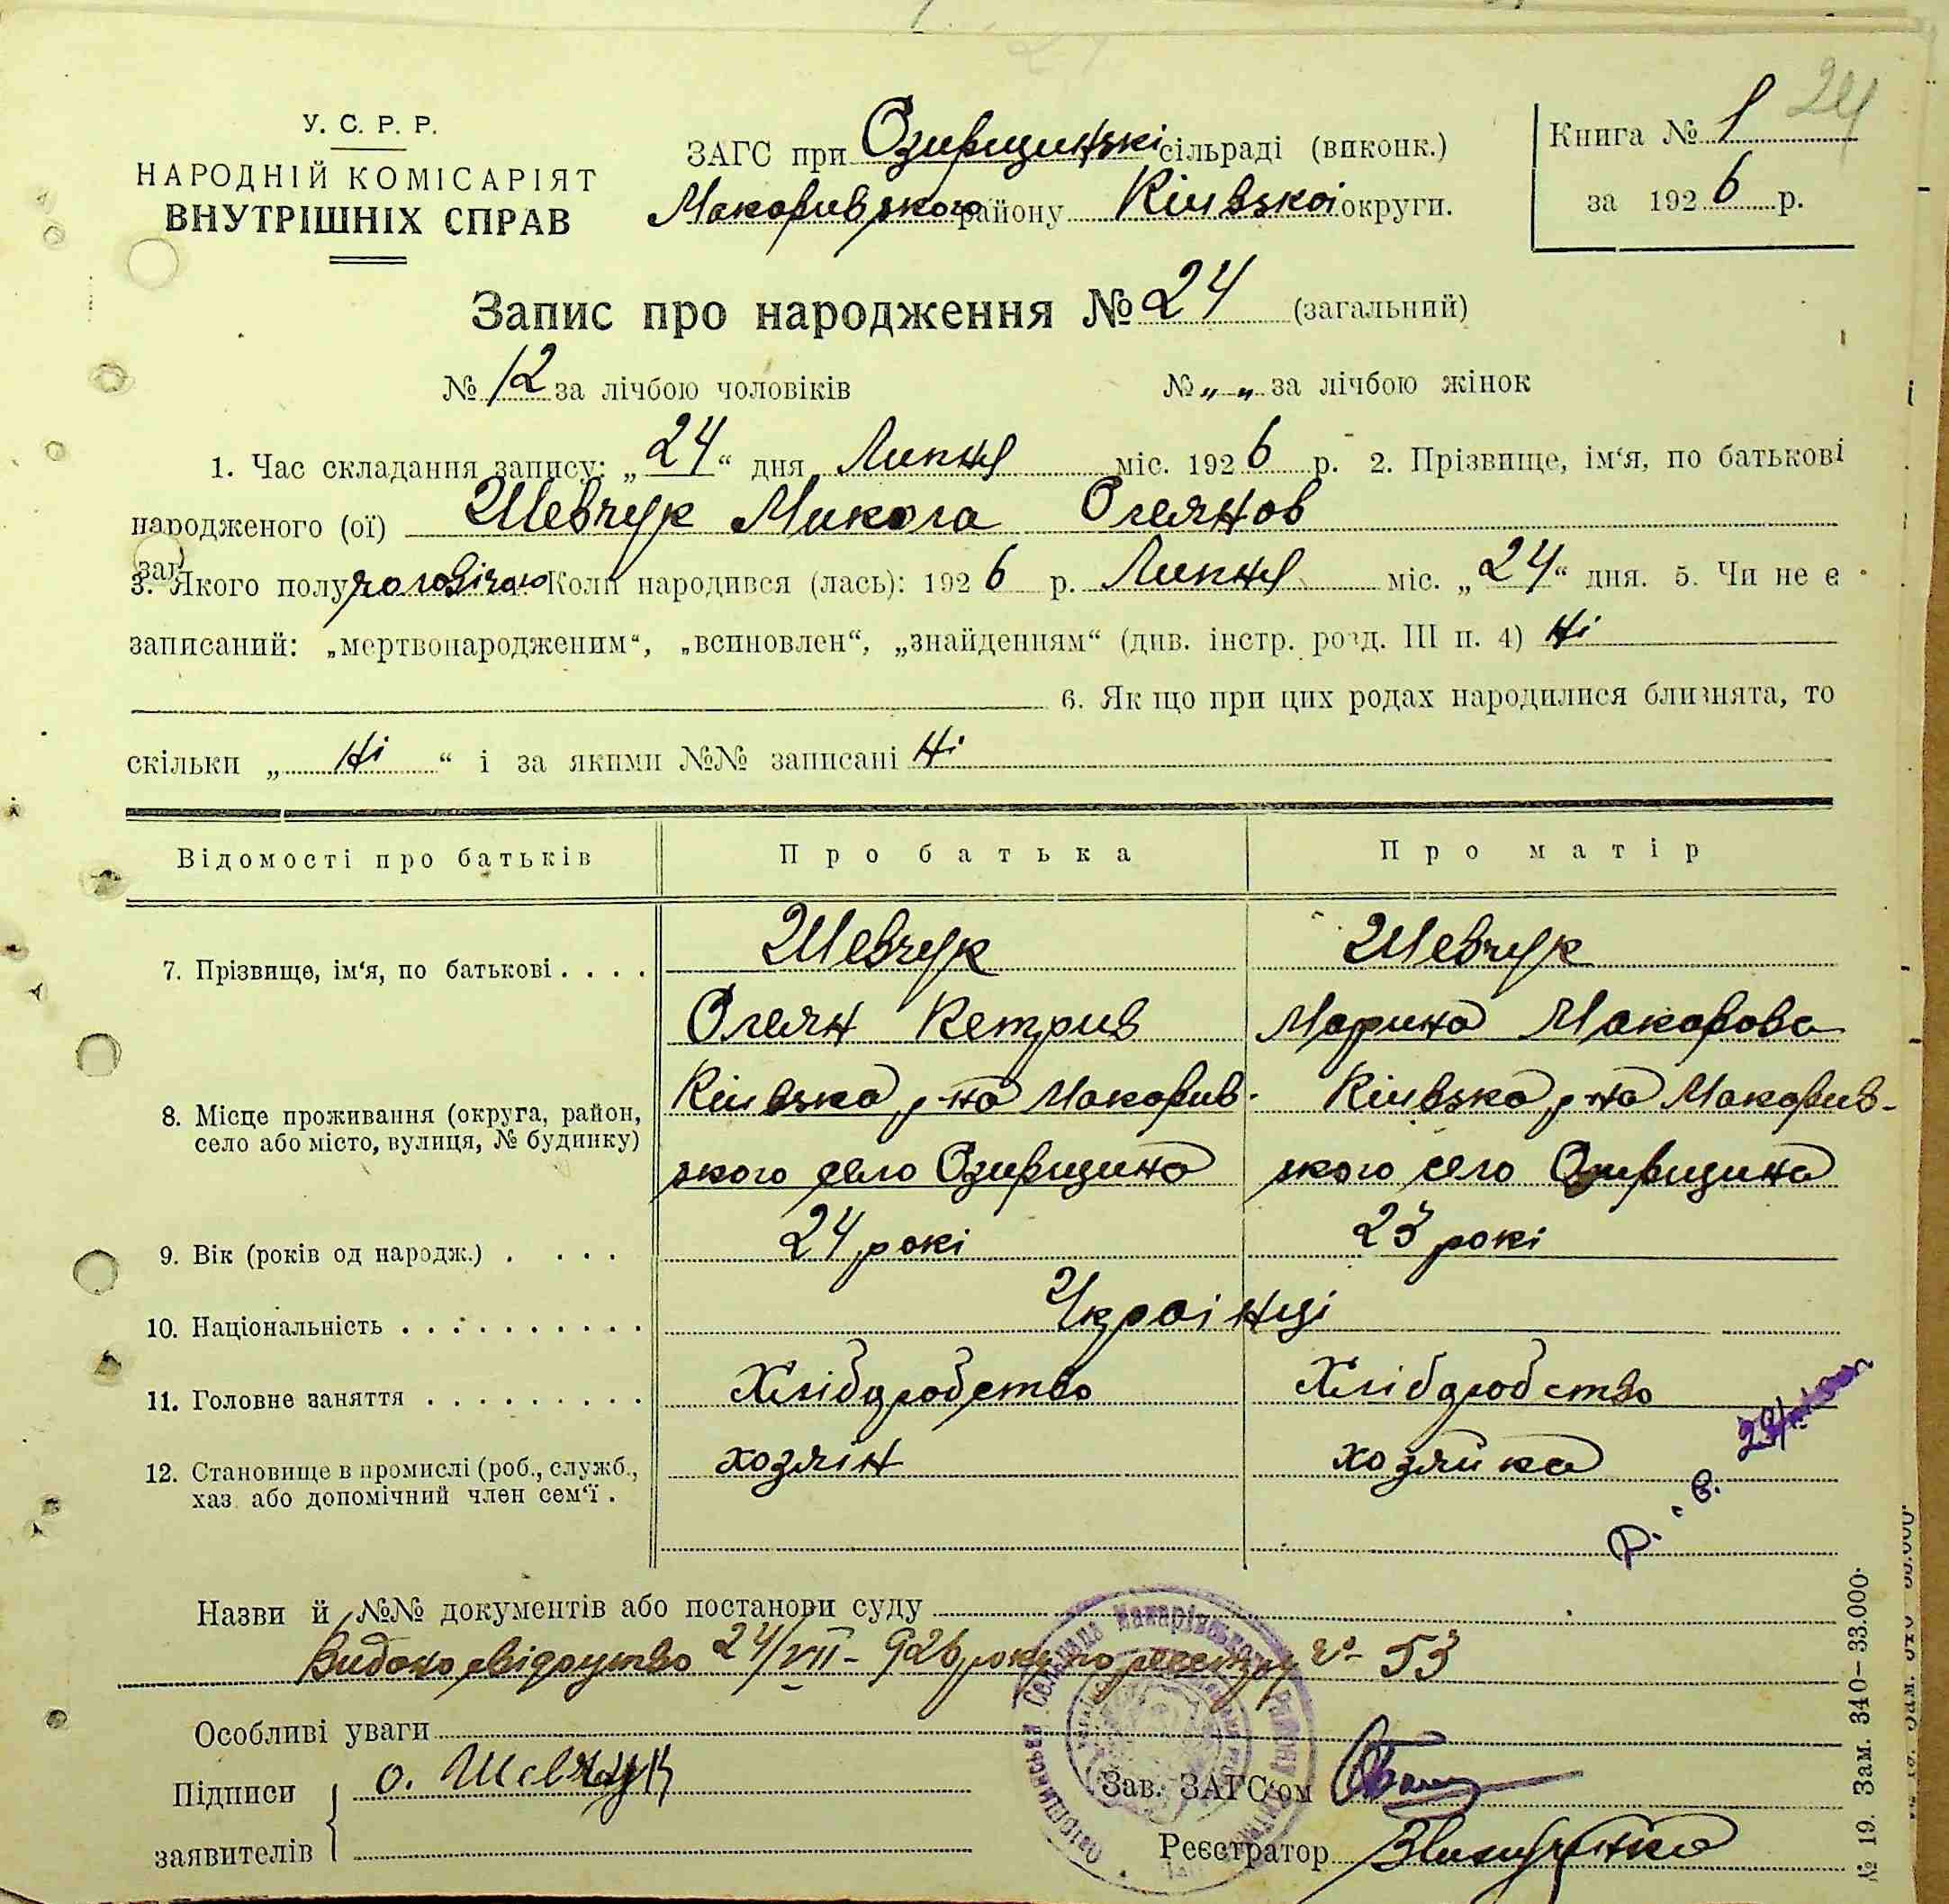 24
У. С. Р. Р.
НАРОДНІЙ КОМІСАРІЯТ
ВНУТРІШНІХ СПРАВ
ЗАГС при Озирщинскі сільраді (виконк.)
Макаривского району Кіивскоі округи.
Книга № 1
за 1926 р.
Запис про народження № 24 (загальний)
№ 12 за лічбою чоловіків № „ „ за лічбою жінок
1. Час складання запису: „24“ дня Липня міс. 1926 р. 2. Прізвище, ім‘я, по батькові
народженого (ої) Шевчук Микола Олеянов
3. Якого полу чоловічою Коли народився (лась): 1926 р. Липня міс. „24“ дня. 5. Чи не є
записаний: „мертвонародженим“, „всиновлен“, „знайденням“ (див. інстр. розд. III п. 4) Ні
6. Як що при цих родах народилися близнята, то
скільки „Ні“ і за якими №№ записані Ні
Відомості про батьків Про батька Про матір
7. Прізвище, ім‘я, по батькові . . . . Шевчук Шевчук
Олеян Петрив Марина Макарова
8. Місце проживання (округа, район, село або місто, вулиця, № будинку) Кіивска р-на Макарив- Кіивска р-на Макарив-
ского село Озирщина ского село Озирщина
9. Вік (років од народж.) . . . . 24 рокі 23 рокі
10. Національність . . . . . . . . . . Украінці
11. Головне заняття . . . . . . . . . Хлібдробство Хлібдробство
12. Становище в промислі (роб., служб., хаз. або допомічний член сем‘ї . хозяін хозяйка
Назви й №№ документів або постанови суду
Видано свідоцтво 24/VII-926 року по реестру № 53
Особливі уваги
Підписи заявителів о. Шевчук
Зав. ЗАГС‘ом
Реєстратор
№ 19. Зам. 340—33.000.